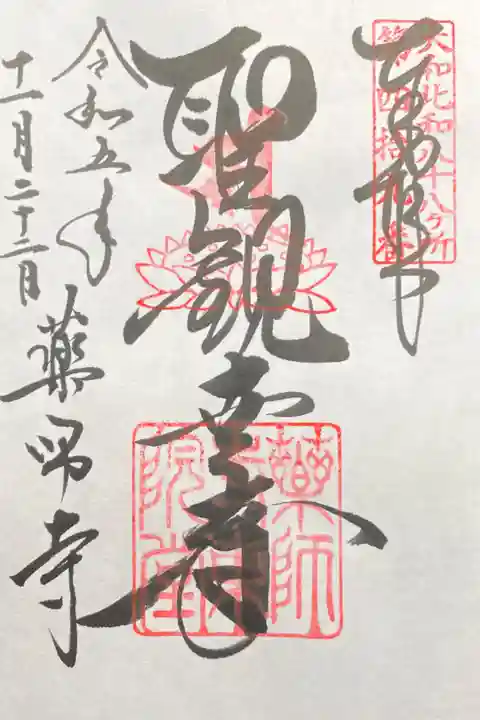 大和北和八十八ヶ所
四拾
番
聖観世音
薬師
寺東
院堂
令和五年
十一月二十二日
薬師寺